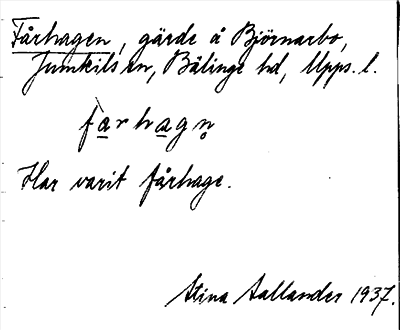 Fårhagen, gärde å Björnarbo,
Jumkils sn, Bälinge hd, Upps. l.
fàrhagn̥
Har varit fårhage.
Stina Sallander 1937.